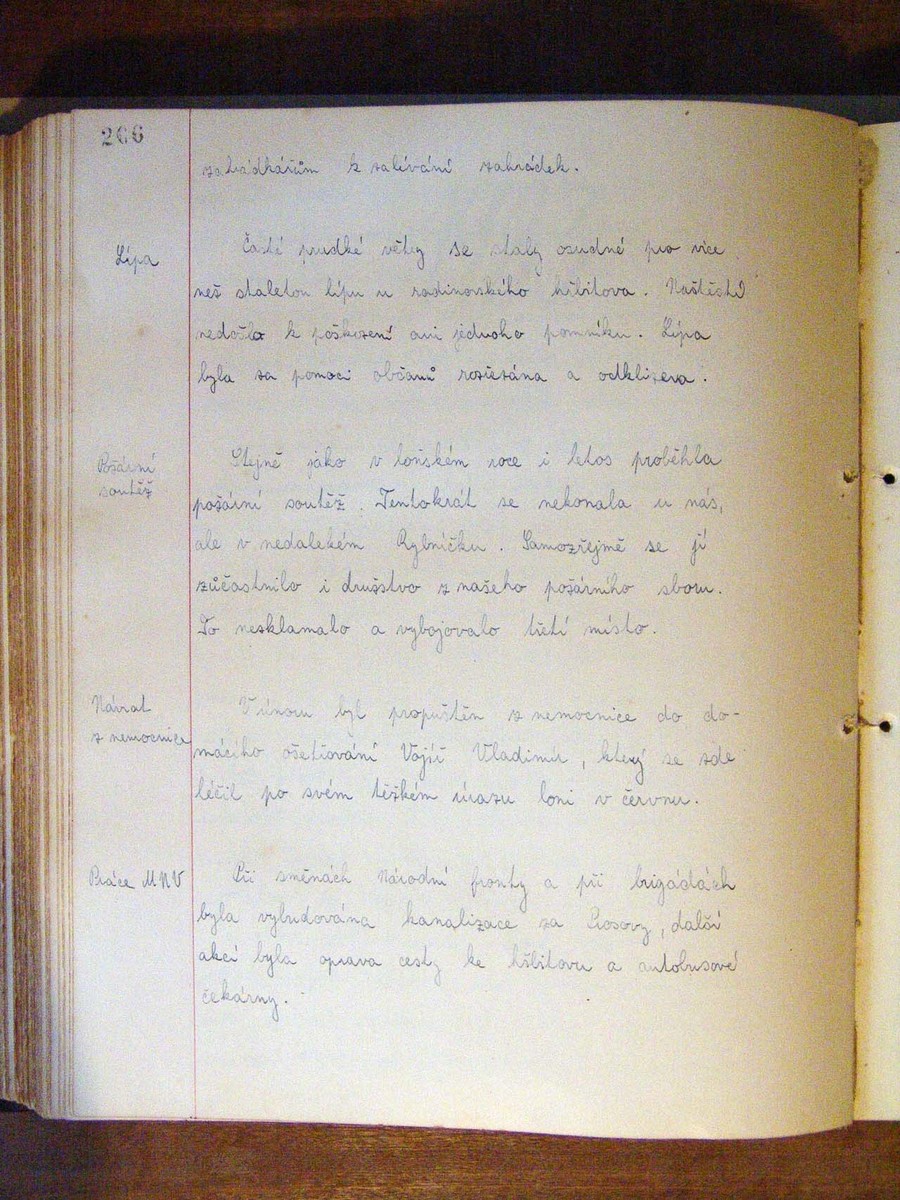 266
zahrádkářům k zalívání zahrádek.
Lípa
Časté prudké větry se staly osudné pro více
než staletou lípu u radinovského hřbitova. Naštěstí
nedošlo k poškození ani jednoho pomníku. Lípa
byla za pomoci občanů rozřezána a odklizena.
Požární
soutěž
Stejně jako v loňském roce i letos proběhla
požární soutěž. Tentokrát se nekonala u nás,
ale v nedalekém Rybníčku. Samozřejmě se jí
zůčastnilo i družstvo z našeho požárního sboru.
To nezklamalo a vybojovalo třetí místo.
Návrat
z nemocnice
V únoru byl propuštěn z nemocnice do do-
mácího ošetřování Vojíř Vladimír, který se zde
léčil po svém těžkém úrazu loni v červnu.
Práce MNV
Při směnách Národní fronty a při brigádách
byla vybudována kanalizace za Prosovy, další
akcí byla oprava cesty ke hřbitovu a autobusové
čekárny.